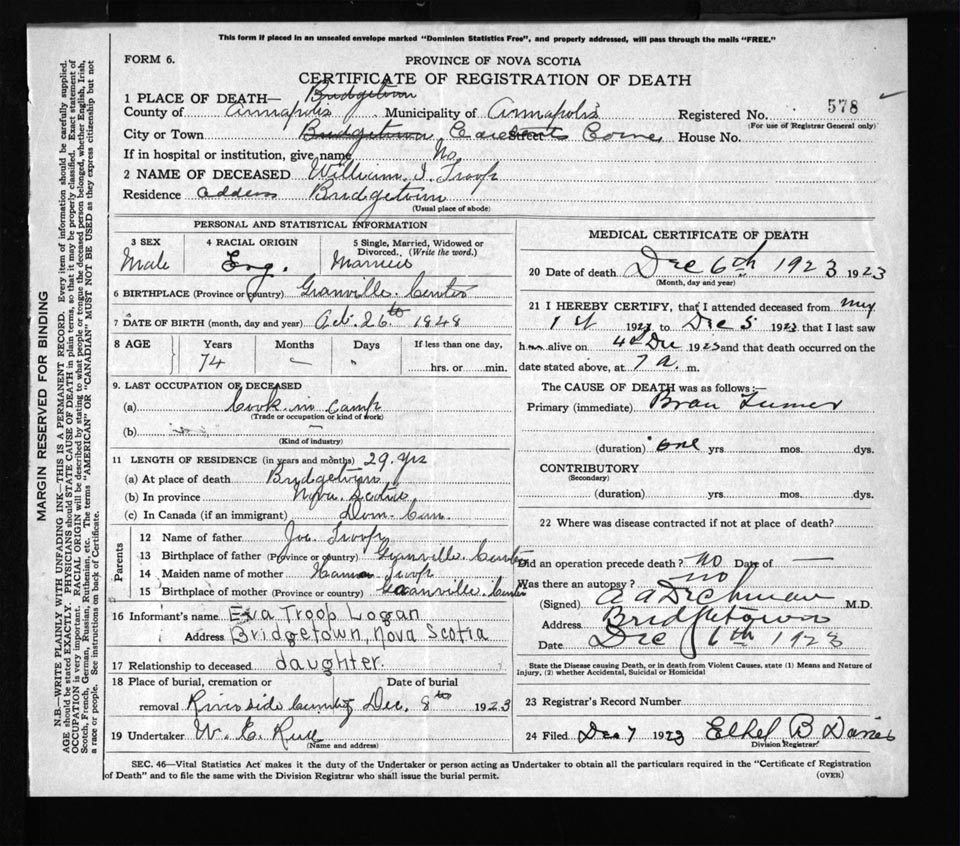 This form if placed in an unsealed envelope marked "Dominion Statistics Free", and properly addressed, will pass through the mails "FREE."
FORM 6.
PROVINCE OF NOVA SCOTIA
CERTIFICATE OF REGISTRATION OF DEATH
1 PLACE OF DEATH— Bridgetown
County of Annapolis Municipality of Annapolis Registered No. 578
(For use of Registrar General only)
City or Town Bridgetown Street House No.
If in hospital or institution, give name No
2 NAME OF DECEASED William I. Troop
Residence address Bridgetown
(Usual place of abode)
PERSONAL AND STATISTICAL INFORMATION
3 SEX 4 RACIAL ORIGIN 5 Single, Married, Widowed or Divorced. (Write the word.)
Male Eng. Married
6 BIRTHPLACE (Province or country) Granville Centre
7 DATE OF BIRTH (month, day and year) Oct. 26th 1848
8 AGE Years Months Days If less than one day,
74 — " hrs. or min.
9. LAST OCCUPATION OF DECEASED
(a) Cook in Camp
(Trade or occupation or kind of work)
(b)
(Kind of industry)
11 LENGTH OF RESIDENCE (in years and months) 29 yrs
(a) At place of death Bridgetown
(b) In province Nova Scotia
(c) In Canada (if an immigrant) Dom. Can.
Parents
12 Name of father Jos. Troop
13 Birthplace of father (Province or country) Granville Centre
14 Maiden name of mother Troop
15 Birthplace of mother (Province or country) Granville Centre
16 Informant's name Eva Troop Logan
Address Bridgetown, Nova Scotia
17 Relationship to deceased daughter.
18 Place of burial, cremation or Date of burial
removal Riverside Cemetery Dec. 8th 1923
19 Undertaker W. E.
(Name and address)
MEDICAL CERTIFICATE OF DEATH
20 Date of death Dec 6th 1923 1923
(Month, day and year)
21 I HEREBY CERTIFY, that I attended deceased from May
1st 1923 to Dec 5 1923 that I last saw
him alive on 4th Dec 1923 and that death occurred on the
date stated above, at 7 a. m.
The CAUSE OF DEATH was as follows:—
Primary (immediate) Brain Tumor
(duration) one yrs. mos. dys.
CONTRIBUTORY
(Secondary)
(duration) yrs. mos. dys.
22 Where was disease contracted if not at place of death?
Did an operation precede death? no Date of —
Was there an autopsy? no
(Signed) A A Dechman M.D.
Address Bridgetown
Date Dec 6th 1923
State the Disease causing Death, or in death from Violent Causes, state (1) Means and Nature of
Injury, (2) whether Accidental, Suicidal or Homicidal
23 Registrar's Record Number
24 Filed Dec 7 1923 Ethel B Davies
Division Registrar
SEC. 46—Vital Statistics Act makes it the duty of the Undertaker or person acting as Undertaker to obtain all the particulars required in the "Certificate of Registration
of Death" and to file the same with the Division Registrar who shall issue the burial permit.
(OVER)
MARGIN RESERVED FOR BINDING
N.B.—WRITE PLAINLY WITH UNFADING INK—THIS IS A PERMANENT RECORD. Every item of information should be carefully supplied.
AGE should be stated EXACTLY. PHYSICIANS should STATE CAUSE OF DEATH in plain terms, so that it may be properly classified. Exact statement of
OCCUPATION is very important. RACIAL ORIGIN will be described by stating to what people or tongue the deceased person belonged, whether English, Irish,
Scotch, French, German, Russian, Ruthenian, etc. The terms "AMERICAN" OR "CANADIAN" MUST NOT BE USED as they express citizenship but not
a race or people. See instructions on back of Certificate.